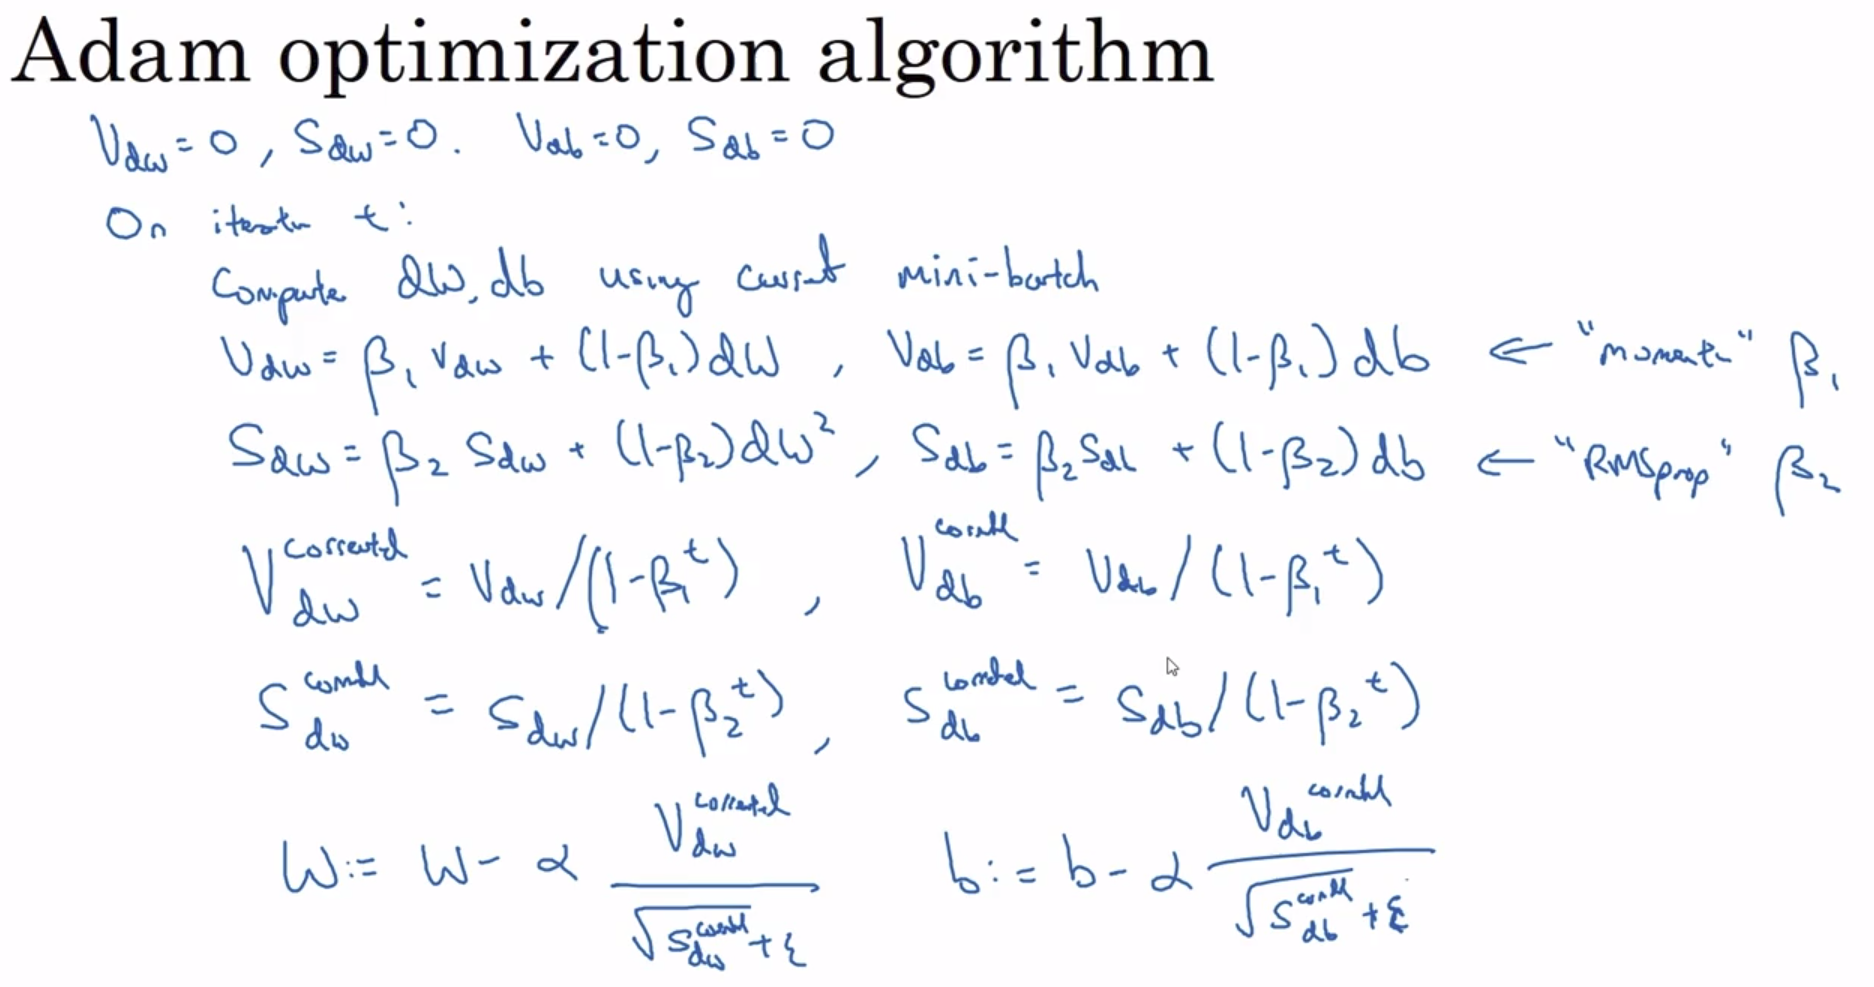 Adam optimization algorithm
V_dw = 0, S_dw = 0. V_db = 0, S_db = 0
On iteratn t:
Compute dW, db using current mini-batch
V_dw = β₁ V_dw + (1-β₁) dW, V_db = β₁ V_db + (1-β₁) db ← "momentum" β₁
S_dw = β₂ S_dw + (1-β₂) dW², S_db = β₂ S_db + (1-β₂) db ← "RMSprop" β₂
V_dw^corrected = V_dw/(1-β₁^t), V_db^corrected = V_db/(1-β₁^t)
S_dw^corrected = S_dw/(1-β₂^t), S_db^corrected = S_db/(1-β₂^t)
W := W - α V_dw^corrected / (√S_dw^corrected + ε) b := b - α V_db^corrected / (√S_db^corrected + ε)